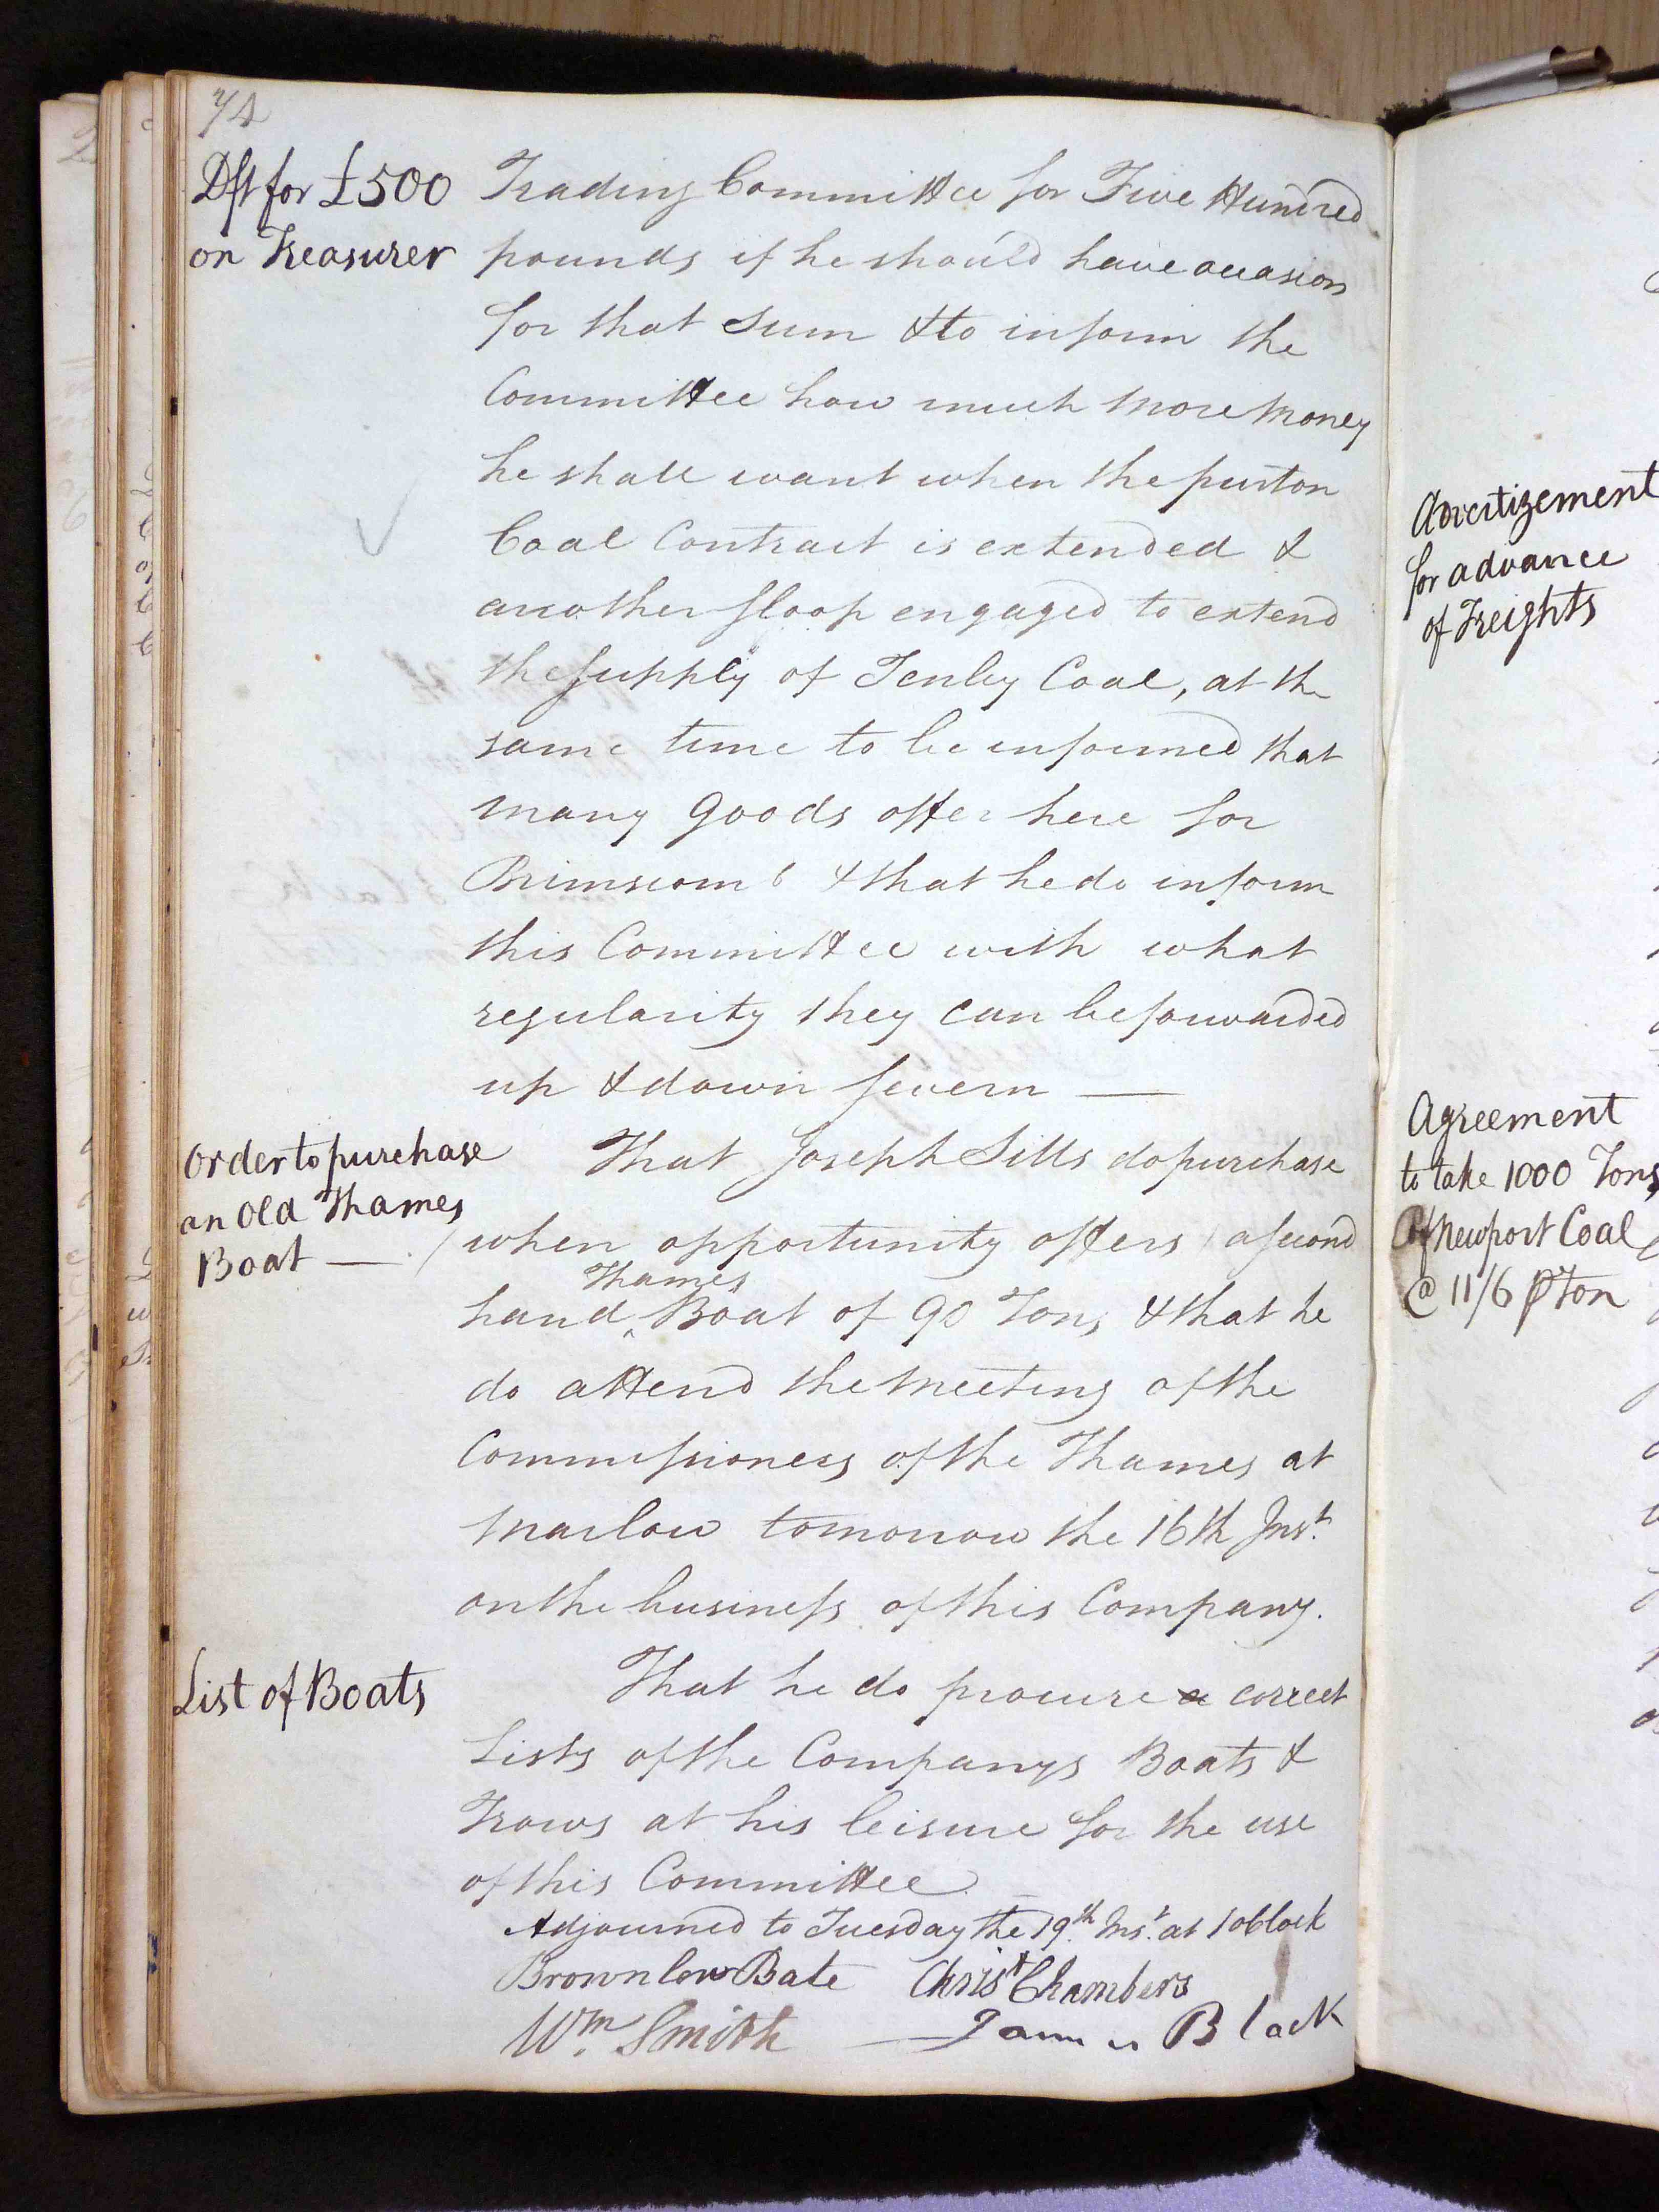 74
Dft for £500
on Treasurer
Trading Committee for Five Hundred
pounds if he should have occasion
for that Sum & to inform the
Committee how much more Money
he shall want when the purton
Coal Contract is extended &
another Sloop engaged to extend
the Supply of Tenby Coal, at the
same time to be informed that
many Goods offer here for
Brimscomb & that he do inform
this Committee with what
regularity they can be forwarded
up & down Severn —
Order to purchase
an Old Thames
Boat —
That Joseph Sills do purchase
(when opportunity offers) a Second
Thames
hand ^ Boat of 90 Tons, & that he
do attend the Meeting of the
Commissioners of the Thames at
Marlow tomorrow the 16th Inst.
on the business of this Company.
List of Boats
That he do procure a correct
Lists of the Companys Boats &
Trows at his leisure for the use
of this Committee.
Adjourned to Tuesday the 19th Inst. at 1 oClock
Brownlow Bate Christ Chambers
Wm. Smith James Black
Advertizement
for advance
of Freights
Agreement
to take 1000 Tons
Of Newport Coal
@ 11/6 ⅌ Ton